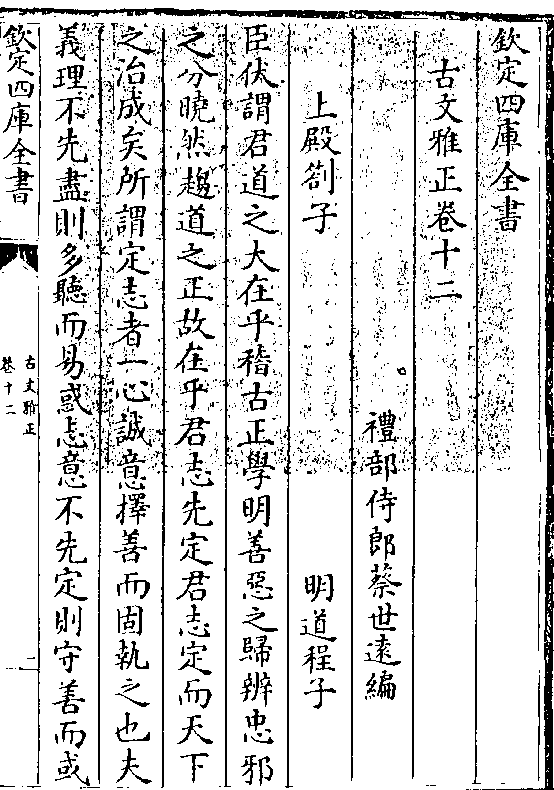 欽定四庫全書
古文雅正卷十二
禮部侍郎蔡世遠編
上殿劄子　明道程子
臣伏謂君道之大在乎稽古正學明善惡之歸辨忠邪
之分曉然趨道之正故在乎君志先定君志定而天下
之治成矣所謂定志者一心誠意擇善而固執之也夫
義理不先盡則多聽而易惑志意不先定則守善而或
欽定四庫全書
古文雅正
卷十二
二